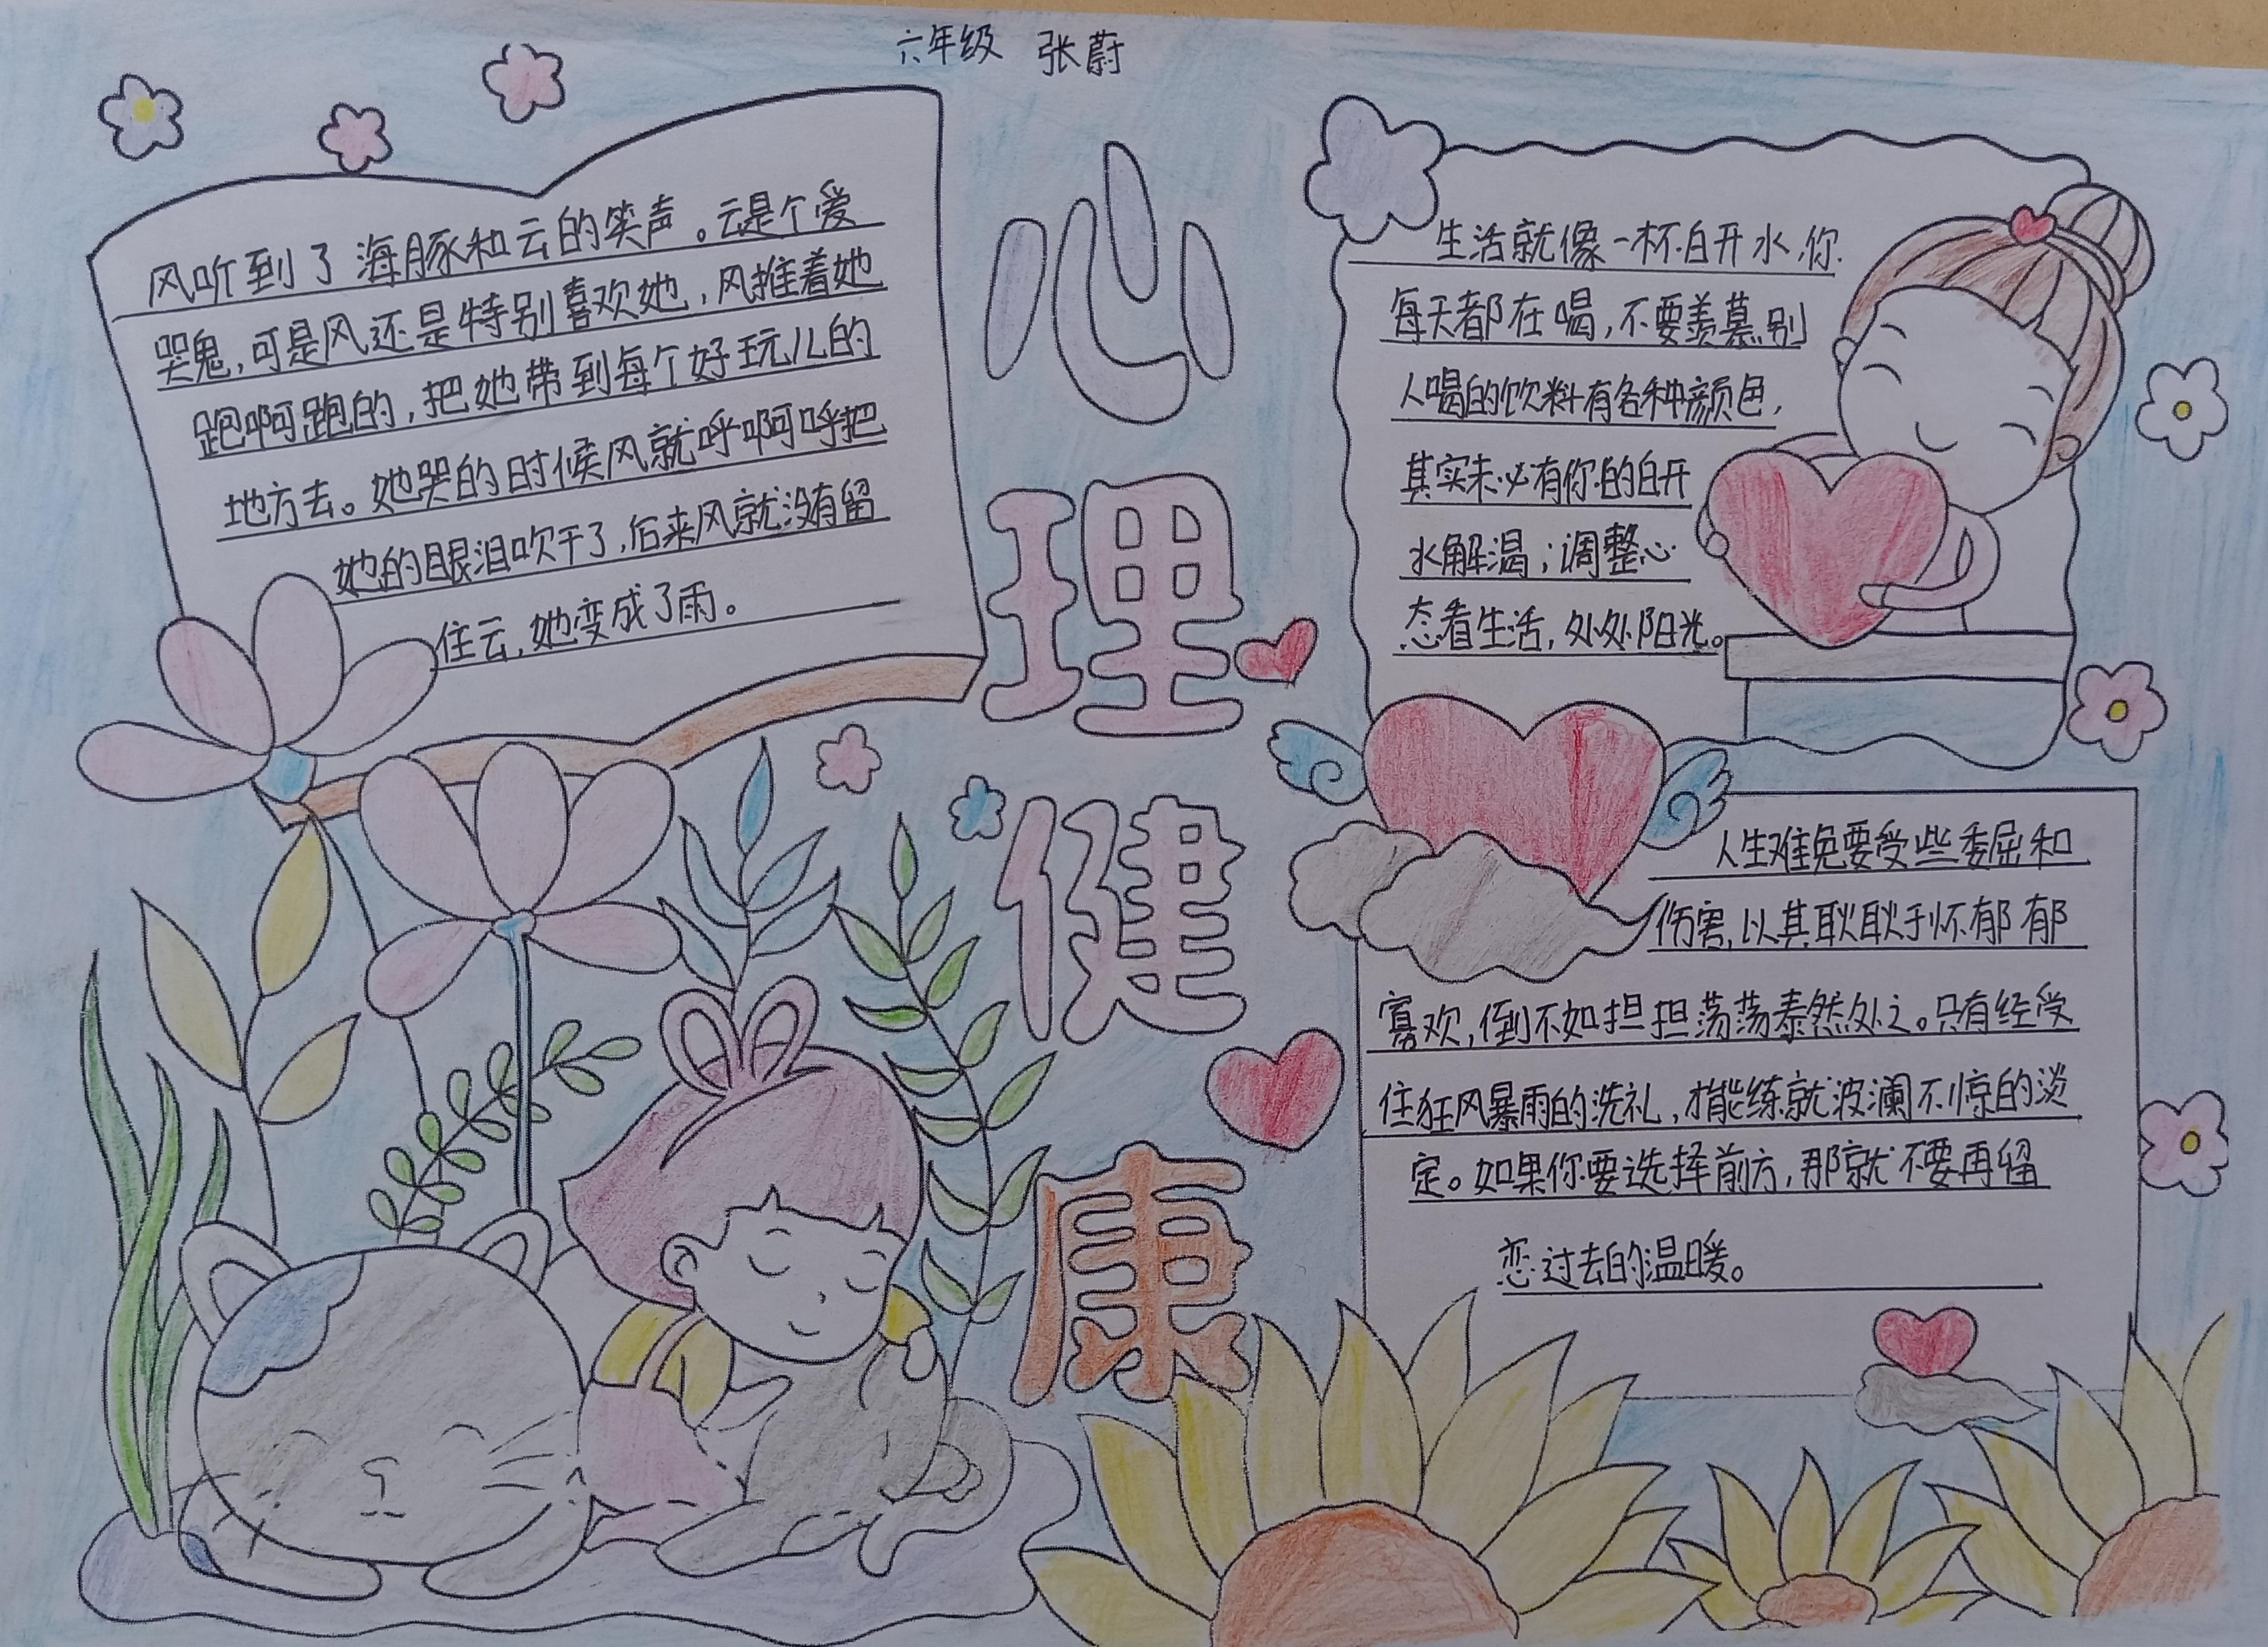 六年级 张蔚
风听到了海豚和云的笑声。云是个爱
哭鬼,可是风还是特别喜欢她,风推着她
跑啊跑的,把她带到每个好玩儿的
地方去。她哭的时候风就呼啊呼把
她的眼泪吹干了,后来风就没有留
住云,她变成了雨。
心
理
健
康
生活就像一杯白开水,你
每天都在喝,不要羡慕别
人喝的饮料有各种颜色,
其实未必有你的白开
水解渴;调整心
态看生活,处处阳光。
人生难免要受些委屈和
伤害,以其耿耿于怀郁郁
寡欢,倒不如担担荡荡泰然处之。只有经受
住狂风暴雨的洗礼,才能练就波澜不惊的淡
定。如果你要选择前方,那就不要再留
恋过去的温暖。